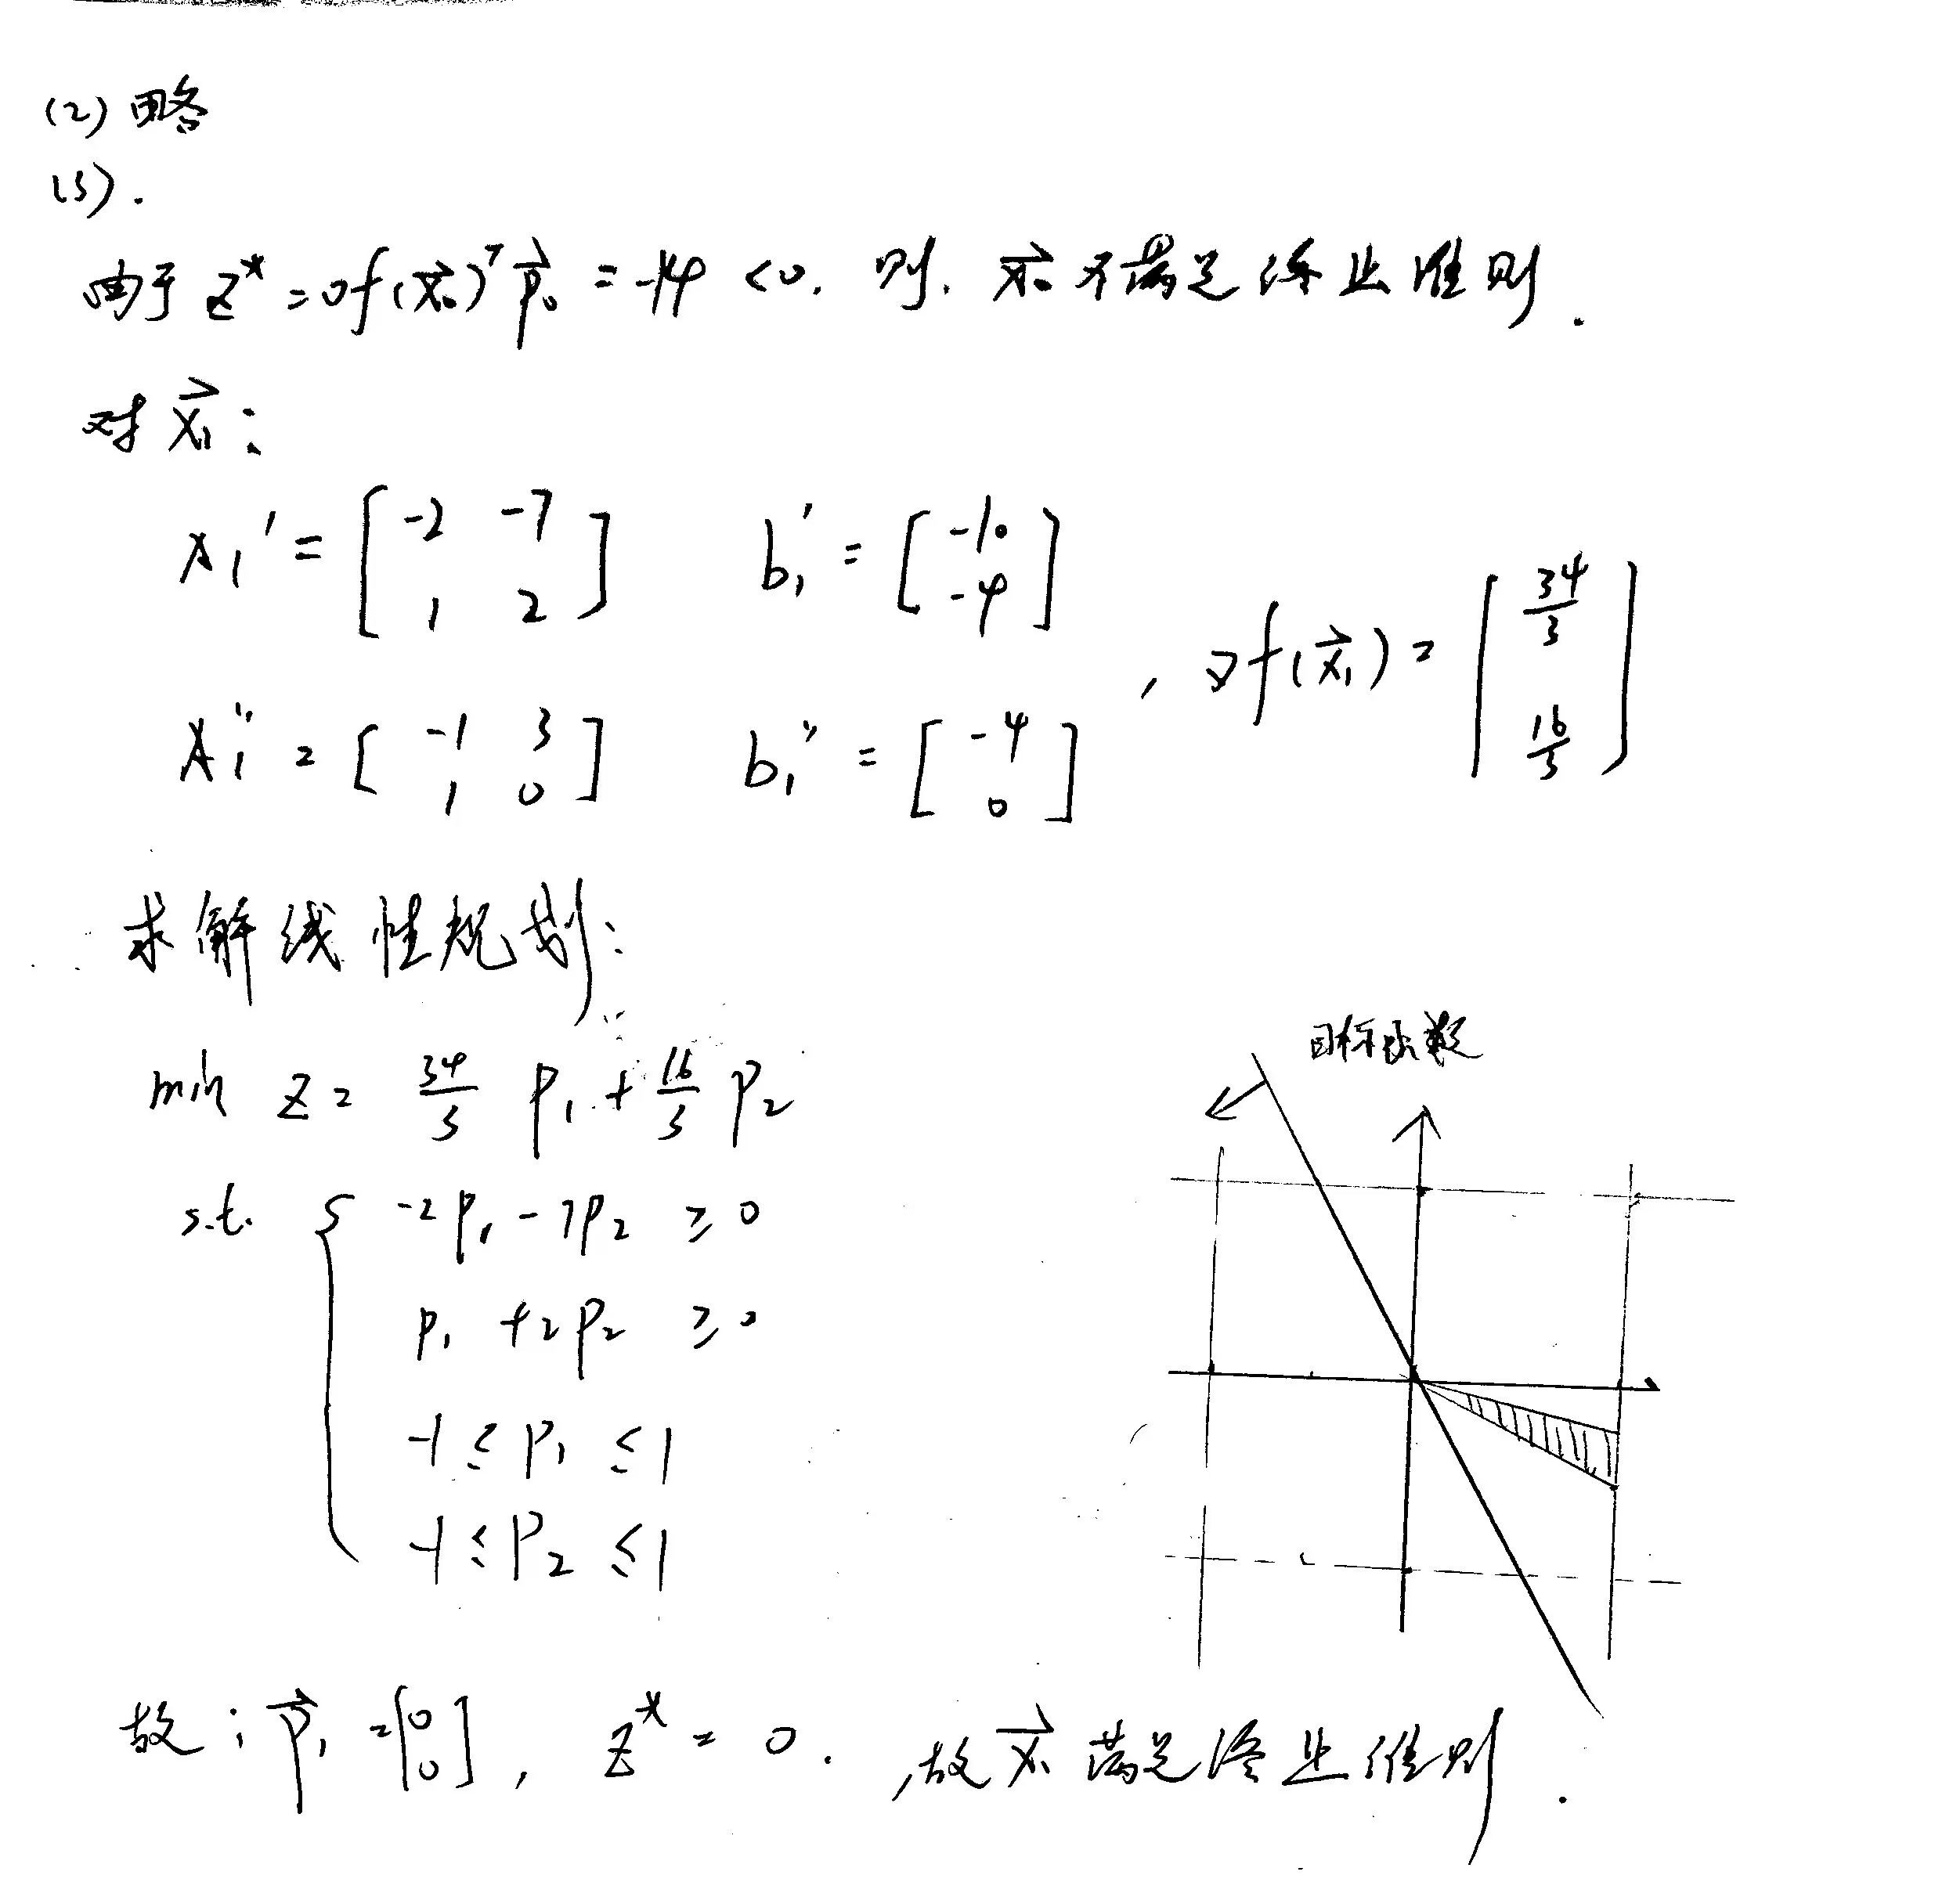 (2) 略
(3).
由于 z* = ∇f(x⃗₀)ᵀ p⃗₀ = -14 < 0. 则, x⃗₀ 不满足终止准则.
对 x⃗₁:
A₁' = [-2 -7; 1 2]  b₁' = [-10; -4]
A₁'' = [-1 3; 1 0]  b₁'' = [-4; 0] , ∇f(x⃗₁) = [34/3; 16/3]
求解线性规划:
min z = 34/3 p₁ + 16/3 p₂
s.t. { -2p₁ - 7p₂ ≥ 0
p₁ + 2p₂ ≥ 0
-1 ≤ p₁ ≤ 1
-1 ≤ p₂ ≤ 1
目标函数
故: p⃗₁ = [0; 0], z* = 0. , 故 x⃗₁ 满足终止准则.